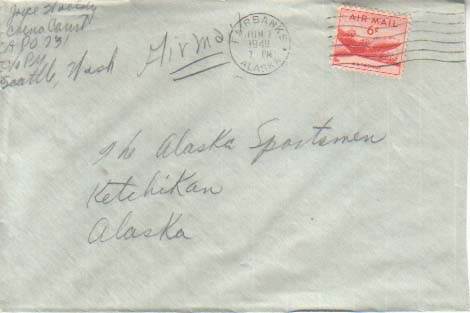 Joyce
A.P.O. 731
Seattle, Wash
Air Mail
FAIRBANKS
JUN 7
ALASKA
AIR MAIL
6¢
The Alaska Sportsmen
Ketchikan
Alaska